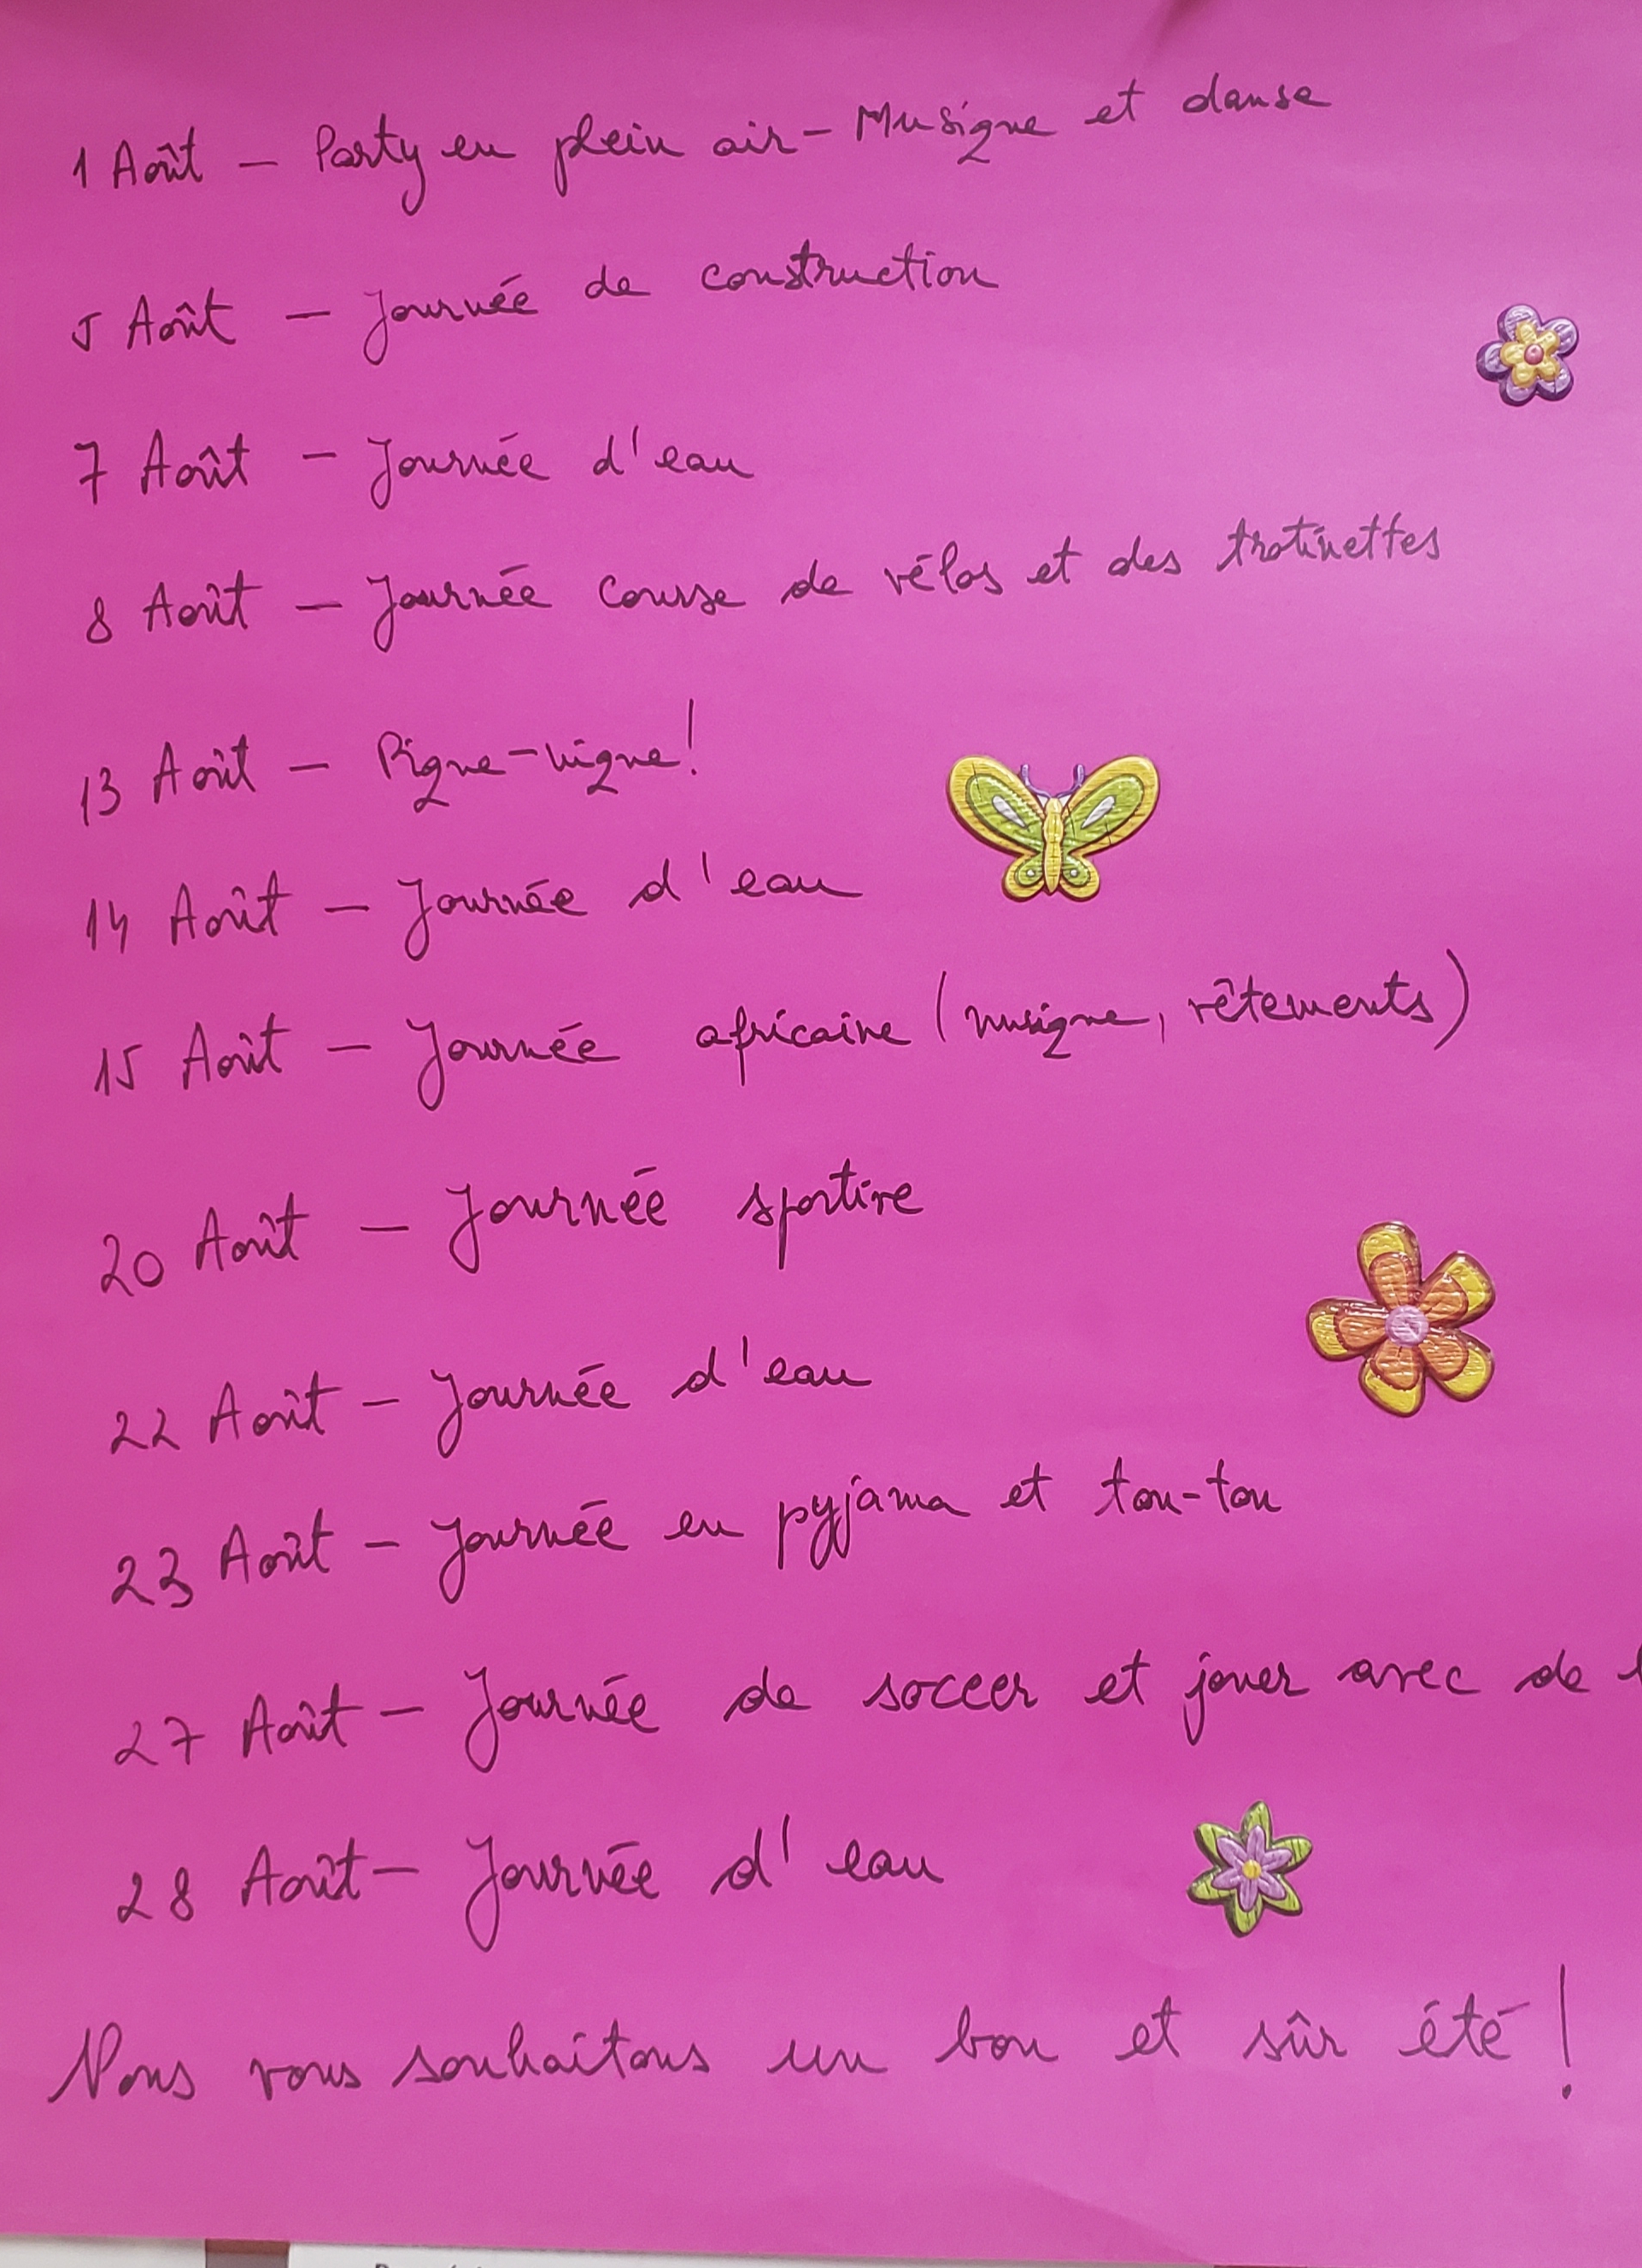 1 Août - Party en plein air - Musique et danse
5 Août - Journée de construction
7 Août - Journée d'eau
8 Août - Journée course de vélos et des trotinettes
13 Août - Pique-nique!
14 Août - Journée d'eau
15 Août - Journée africaine (musique, vêtements)
20 Août - Journée sportive
22 Août - Journée d'eau
23 Août - Journée en pyjama et tou-tou
27 Août - Journée de soccer et jouer avec de
28 Août - Journée d'eau
Nous vous souhaitons un bon et sûr été!